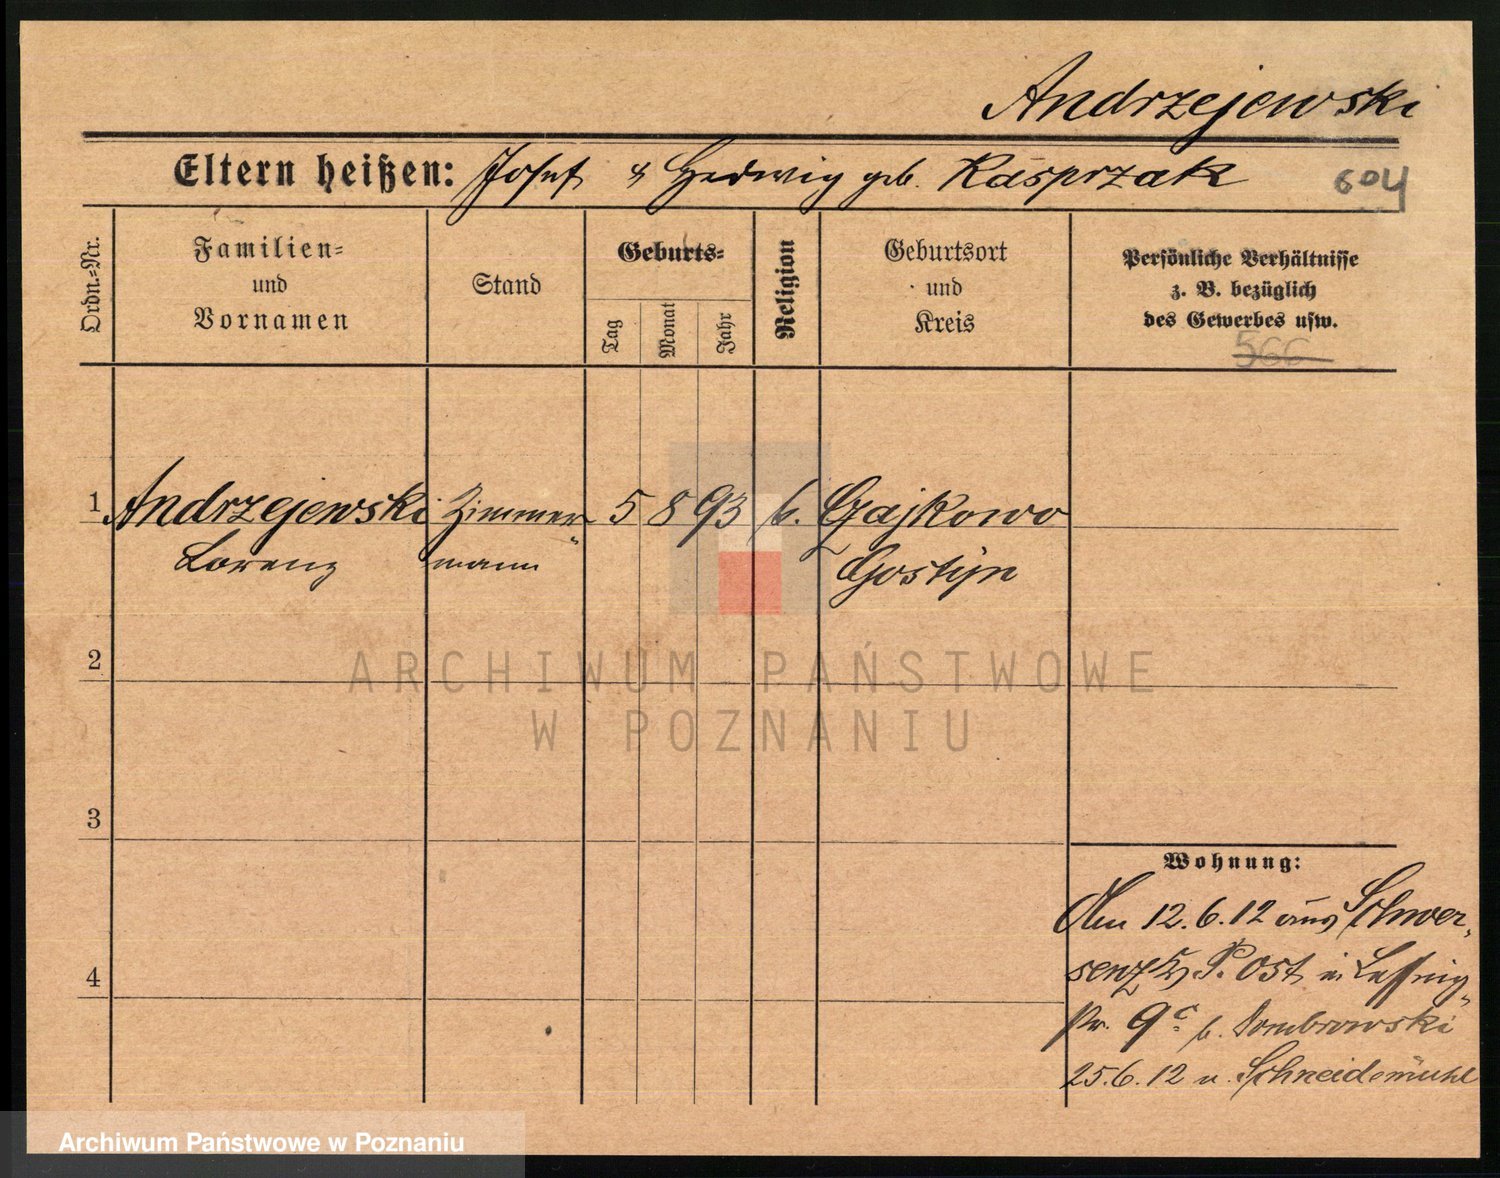 Andrzejewski
Eltern heißen: Josef & Hedwig geb. Kasprzak 604
Ordn.-Nr.
Familien-
und
Vornamen
Stand
Geburts-
Tag
Monat
Jahr
Religion
Geburtsort
und
Kreis
Persönliche Verhältnisse
z. B. bezüglich
des Gewerbes usw.
566
1 Andrzejewski Zimmer- 5 8 93 k. Czajkowo
Lorenz mann Gostyn
2
ARCHIWUM PAŃSTWOWE
W POZNANIU
3
Wohnung:
Am 12.6.12 aus Schwer-
senz Kr. P. Ost in Lessing-
str. 9c b. Dombrowski
4
25.6.12 n. Schneidemühl
Archiwum Państwowe w Poznaniu